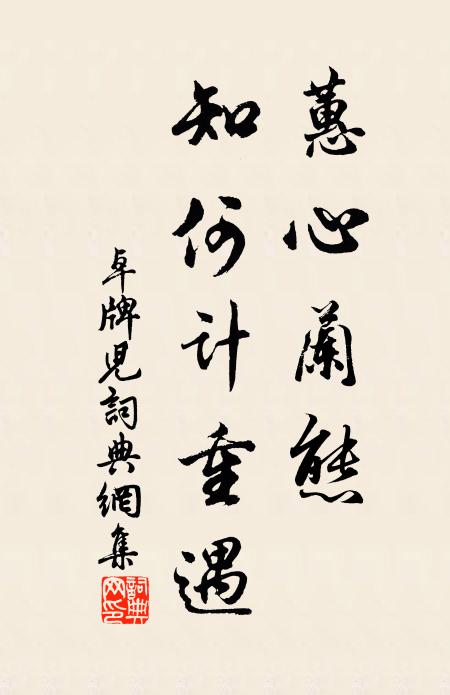 蕙心蘭態
知何計重遇
卓牌兒詞典網集
詞典
网印